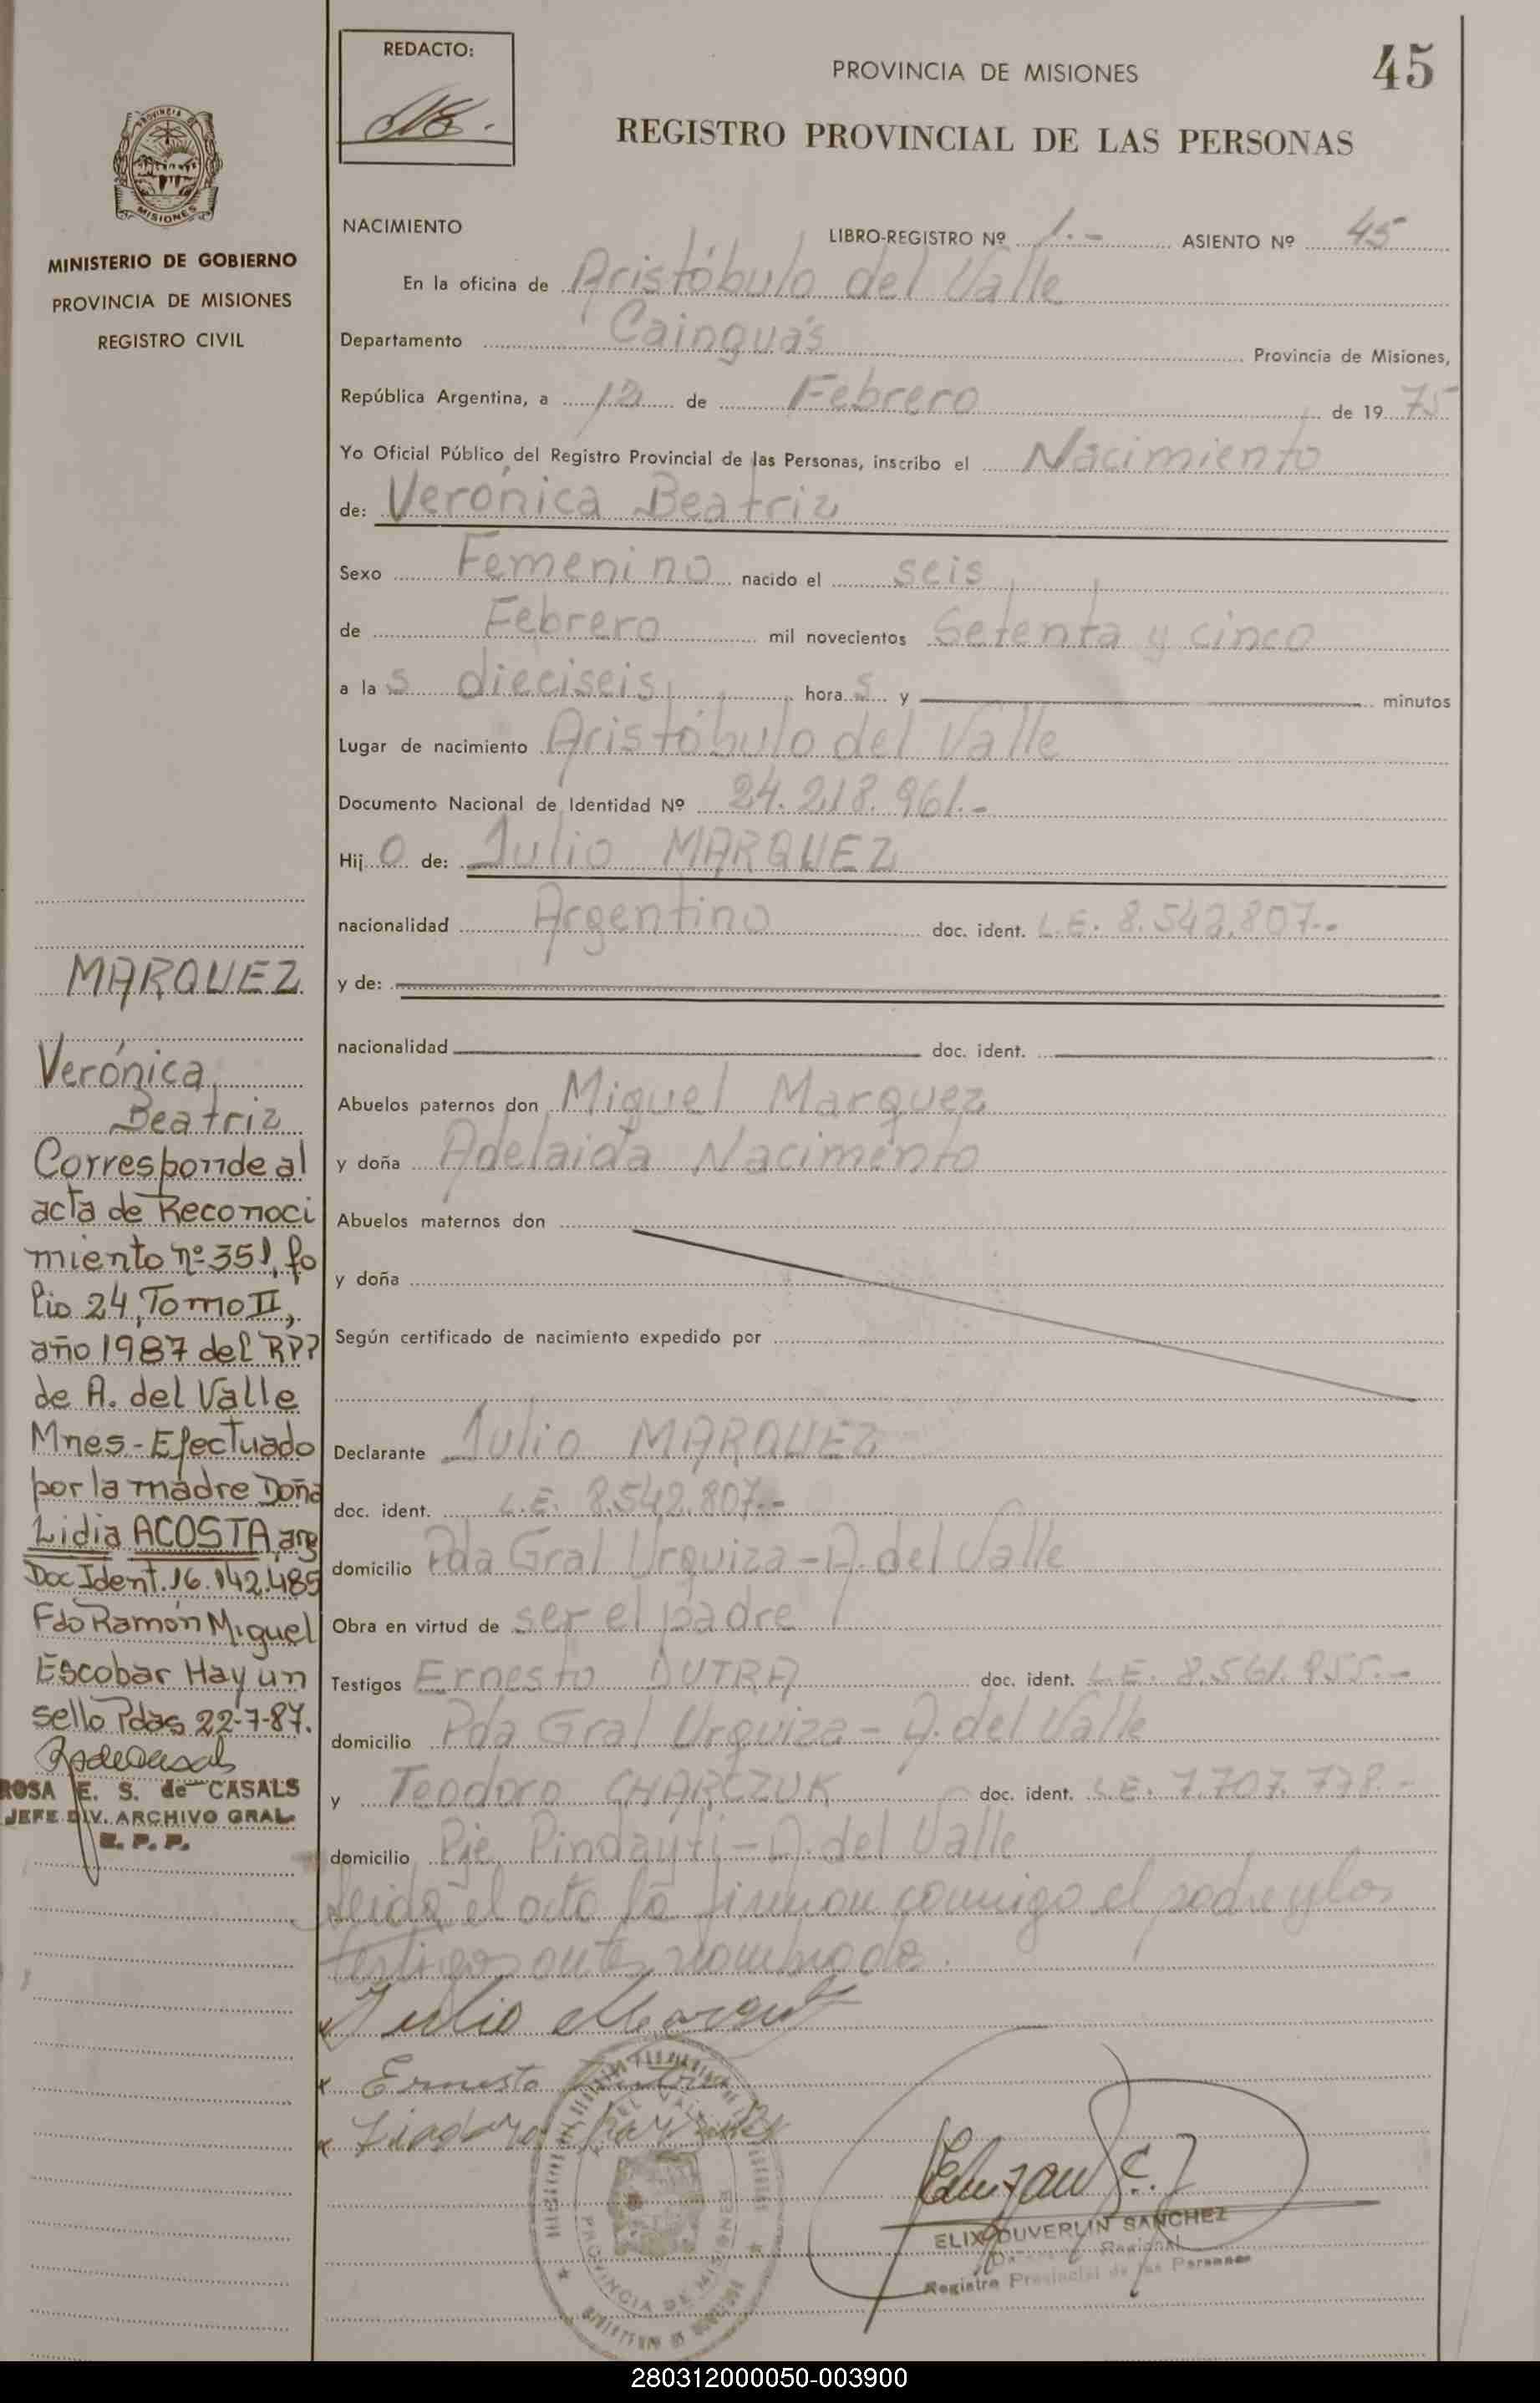 REDACTO:
PROVINCIA DE MISIONES
45
REGISTRO PROVINCIAL DE LAS PERSONAS
PROVINCIA DE
MISIONES
MINISTERIO DE GOBIERNO
PROVINCIA DE MISIONES
REGISTRO CIVIL
NACIMIENTO
LIBRO-REGISTRO Nº 1.- ASIENTO Nº 45
En la oficina de Aristóbulo del Valle
Departamento Cainguás Provincia de Misiones,
República Argentina, a 12 de Febrero de 1975
Yo Oficial Público del Registro Provincial de las Personas, inscribo el Nacimiento
de: Verónica Beatriz
Sexo Femenino nacido el seis
de Febrero mil novecientos Setenta y cinco
a la s dieciseis hora s y minutos
Lugar de nacimiento Aristóbulo del Valle
Documento Nacional de Identidad Nº 24.218.961.-
Hij o de: Julio MARQUEZ
nacionalidad Argentino doc. ident. L.E. 8.542.807.-
y de:
nacionalidad doc. ident.
Abuelos paternos don Miguel Marquez
y doña Adelaida Nacimento
Abuelos maternos don
y doña
Según certificado de nacimiento expedido por
Declarante Julio MARQUEZ
doc. ident. L.E. 8.542.807.-
domicilio Pda Gral Urquiza - A. del Valle
Obra en virtud de ser el padre
Testigos Ernesto DUTRA doc. ident. L.E. 8.561.955.-
domicilio Pda Gral Urquiza - A. del Valle
y Teodoro CHARCZUK doc. ident. L.E. 7.707.778.-
domicilio Pje Pindayti - A. del Valle
Leida el acta la firman conmigo el padre y los
testigos antes nombrado.
Julio Marquez
x Ernesto Dutra
x
MARQUEZ
Verónica
Beatriz
Corresponde al
acta de Reconoci
miento nº 351, fo
lio 24, Tomo II,
año 1987 del RPP
de A. del Valle
Mnes - Efectuado
por la madre Doña
Lidia ACOSTA, arg
Doc Ident. 16.142.485
Fdo Ramón Miguel
Escobar Hay un
sello Pdas 22-7-87.
ROSA E. S. de CASALS
JEFE DIV. ARCHIVO GRAL
R. P. P.
PROVINCIA DE MISIONES
ELIX DUVERLIN SANCHEZ
Regional
Registro Provincial de las Personas
280312000050-003900